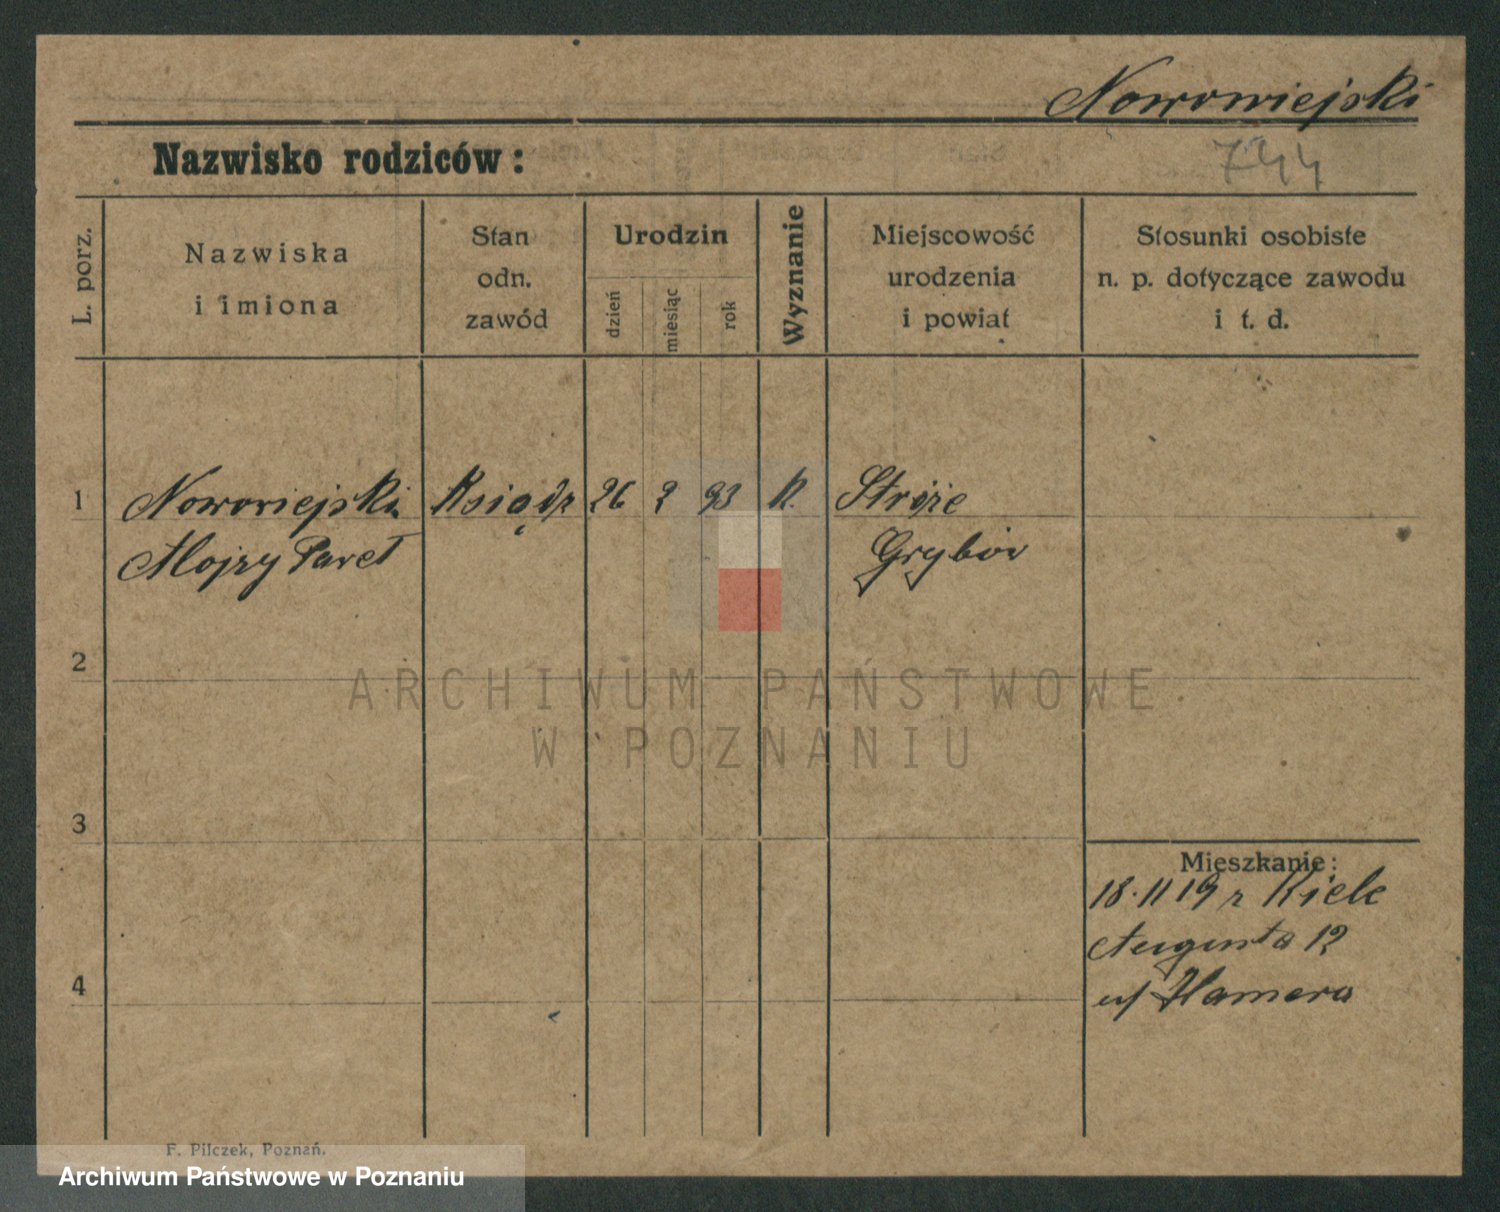 Nowowiejski
744
Nazwisko rodziców:
L. porz.
Nazwiska
i imiona
Stan
odn.
zawód
Urodzin
dzień
miesiąc
rok
Wyznanie
Miejscowość
urodzenia
i powiat
Stosunki osobiste
n. p. dotyczące zawodu
i t. d.
1
Nowowiejski Ksiądz 26 2 93 K. Stróże
Alojzy Paweł Grybów
2
ARCHIWUM PAŃSTWOWE
W POZNANIU
3
Mieszkanie:
18.11 19 r Kiele
Augusta 12
u/ Hamera
4
F. Pilczek, Poznań.
Archiwum Państwowe w Poznaniu